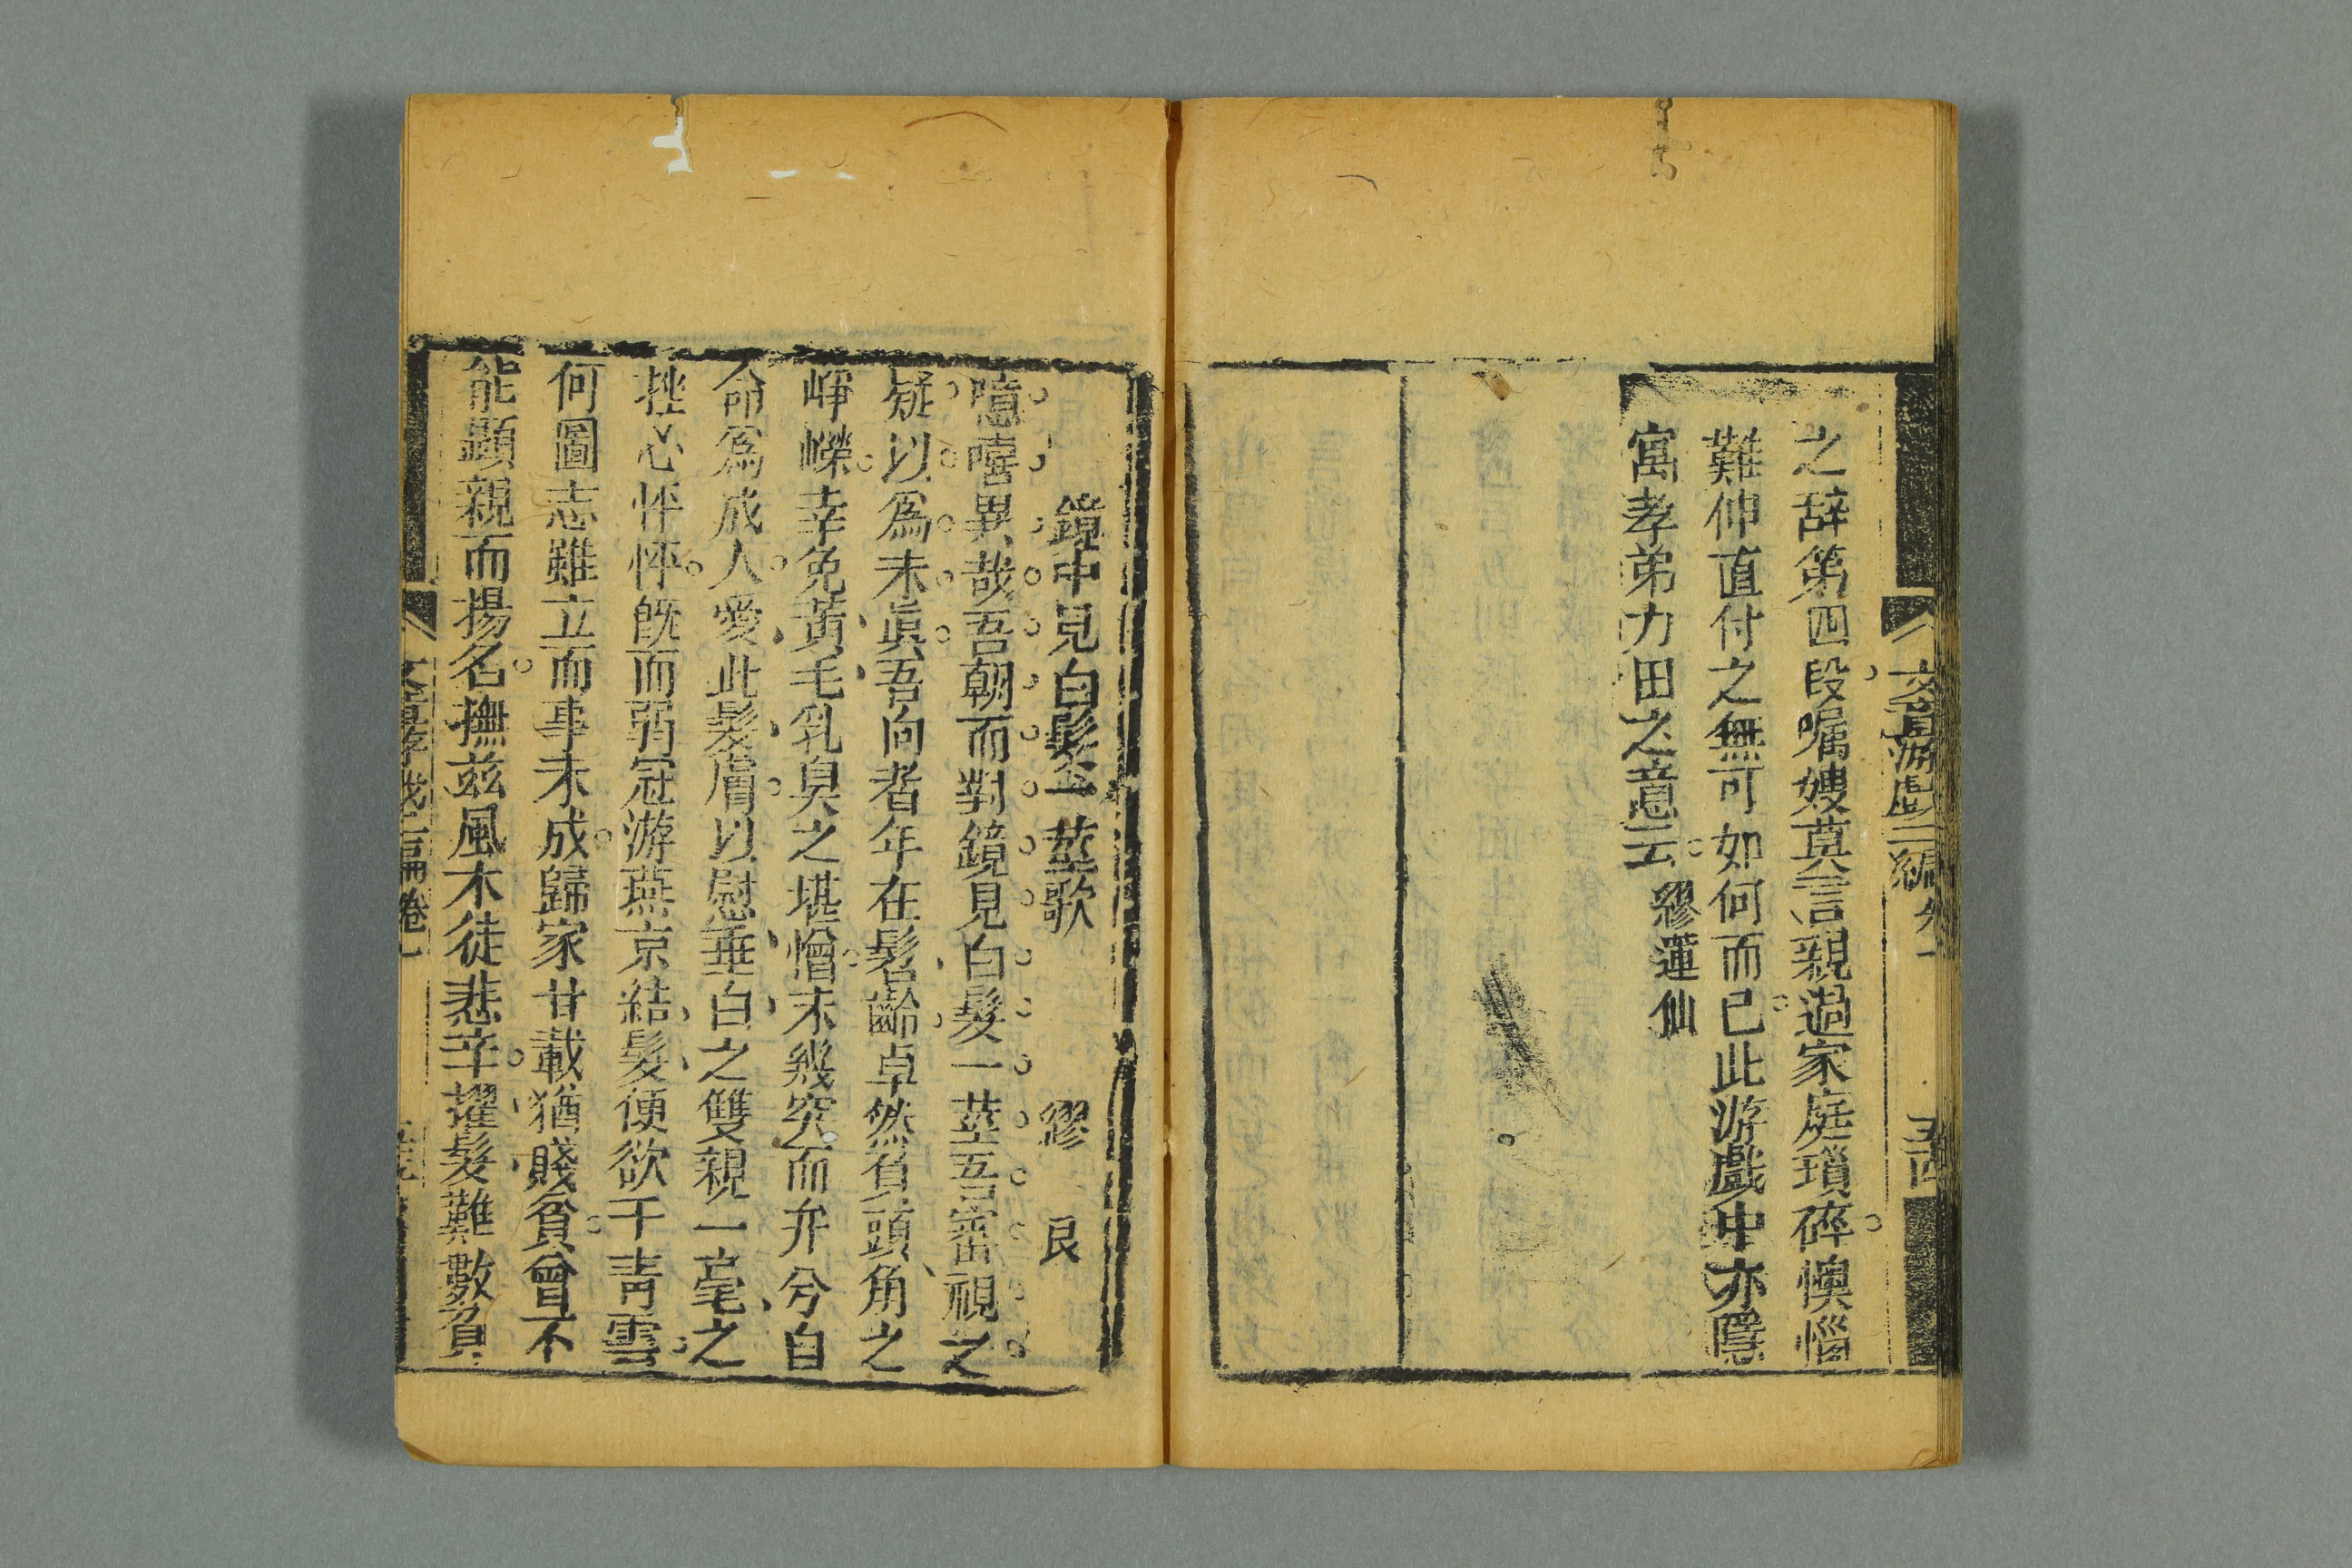 文章游戲二編 卷一 五四
之辞第四段嘱嫂莫言親過家庭瑣碎懊惱
難仲直付之無可如何而已此游戲中亦隱
寓孝弟力田之意云 繆蓮仙
鏡中見白髮一莖歌 繆 艮
噫嘻異哉吾朝而對鏡見白髮一莖吾審視之
疑以爲未眞吾向者年在髫齡卓然負頭角之
崢嶸幸免黃毛乳臭之堪憎未幾突而弁兮自
命爲成人愛此髮膚以慰垂白之雙親一毫之
挫心怦怦旣而弱冠游燕京結髮便欲干青雲
何圖志雖立而事未成歸家廿載猶賤貧曾不
能顯親而揚名撫茲風木徒悲辛擢髮難數負
文章游戲二編 卷一